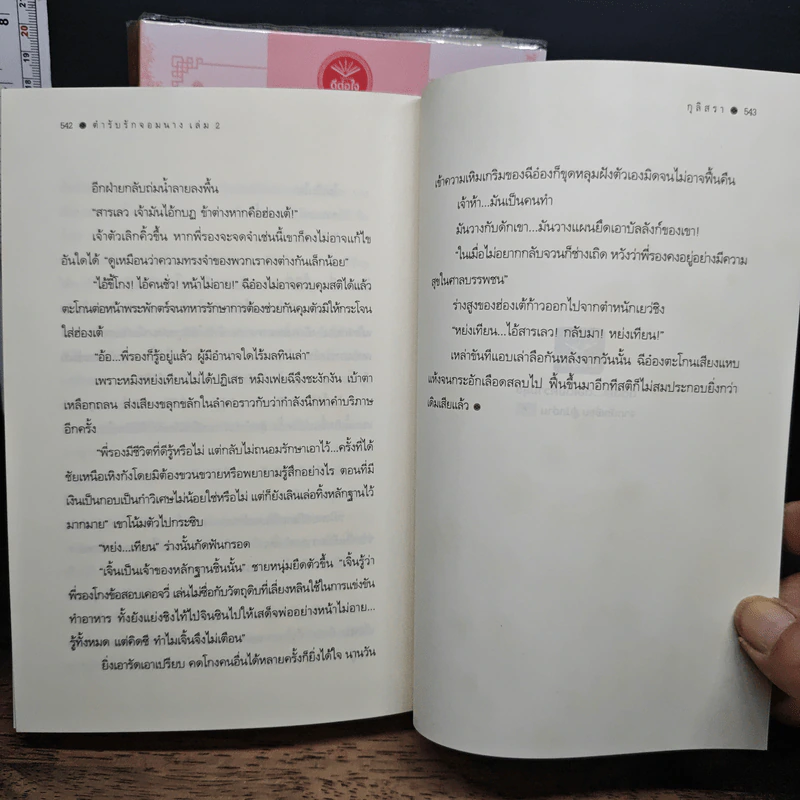 8
20
19
18
17
ดีต่อใจ
542 ● ตำรับรักจอมนาง เล่ม 2
อีกฝ่ายกลับถ่มน้ำลายลงพื้น
“สารเลว เจ้ามันไอ้กบฏ ข้าต่างหากคือฮ่องเต้!”
เจ้าตัวเลิกคิ้วขึ้น หากพี่รองจะจดจำเช่นนี้เขาก็คงไม่อาจแก้ไข
อันใดได้ “ดูเหมือนว่าความทรงจำของพวกเราคงต่างกันเล็กน้อย”
“ไอ้ขี้โกง! ไอ้คนชั่ว! หน้าไม่อาย!” ฉีอ๋องไม่อาจควบคุมสติได้แล้ว
ตะโกนต่อหน้าพระพักตร์จนทหารรักษาการต้องช่วยกันคุมตัวมิให้กระโจน
ใส่ฮ่องเต้
“อ้อ...พี่รองก็รู้อยู่แล้ว ผู้มีอำนาจใดไร้มลทินเล่า”
เพราะหมิงหย่งเทียนไม่ได้ปฏิเสธ หมิงเฟยฉีจึงชะงักงัน เบ้าตา
เหลือกถลน ส่งเสียงขลุกขลักในลำคอราวกับว่ากำลังนึกหาคำบริภาษ
อีกครั้ง
“พี่รองมีชีวิตที่ดีรู้หรือไม่ แต่กลับไม่ถนอมรักษาเอาไว้...ครั้งที่ได้
ชัยเหนือเหิงกังโดยมิต้องขวนขวายหรือพยายามรู้สึกอย่างไร ตอนที่มี
เงินเป็นกอบเป็นกำวิเศษไม่น้อยใช่หรือไม่ แต่ก็ยังเลินเล่อทิ้งหลักฐานไว้
มากมาย” เขาโน้มตัวไปกระซิบ
“หย่ง...เทียน” ร่างนั้นกัดฟันกรอด
“เจิ้นเป็นเจ้าของหลักฐานชิ้นนั้น” ชายหนุ่มยืดตัวขึ้น “เจิ้นรู้ว่า
พี่รองโกงข้อสอบเคอจวี่ เล่นไม่ซื่อกับวัตถุดิบที่เลี่ยงหลินใช้ในการแข่งขัน
ทำอาหาร ทั้งยังแย่งชิงไท้ไปจินซินไปให้เสด็จพ่ออย่างหน้าไม่อาย...
รู้ทั้งหมด แต่คิดซี ทำไมเจิ้นจึงไม่เตือน”
ยิ่งเอารัดเอาเปรียบ คดโกงคนอื่นได้หลายครั้งก็ยิ่งได้ใจ นานวัน
กุลิสรา ● 543
เข้าความเหิมเกริมของฉีอ๋องก็ขุดหลุมฝังตัวเองมิดจนไม่อาจฟื้นคืน
เจ้าห้า...มันเป็นคนทำ
มันวางกับดักเขา...มันวางแผนยึดเอาบัลลังก์ของเขา!
“ในเมื่อไม่อยากกลับจวนก็ช่างเถิด หวังว่าพี่รองคงอยู่อย่างมีความ
สุขในศาลบรรพชน”
ร่างสูงของฮ่องเต้ก้าวออกไปจากตำหนักเยว่ชิง
“หย่งเทียน...ไอ้สารเลว! กลับมา! หย่งเทียน!”
เหล่าขันทีแอบเล่าลือกันหลังจากวันนั้น ฉีอ๋องตะโกนเสียงแหบ
แห้งจนกระอักเลือดสลบไป ฟื้นขึ้นมาอีกทีสติก็ไม่สมประกอบยิ่งกว่า
เดิมเสียแล้ว ●